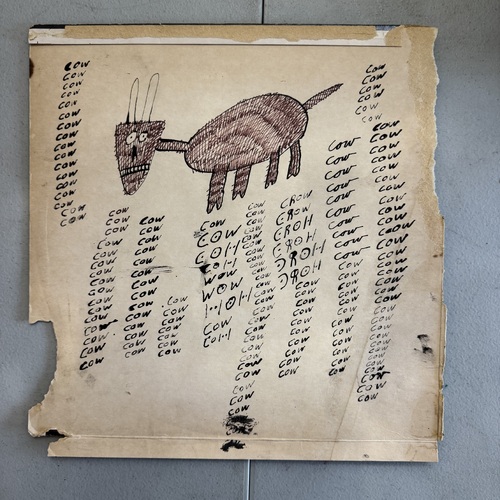 cow
cow
cow
cow
cow
cow
cow
cow
cow
cow
cow
cow
cow
cow
cow
cow
cow
cow
cow
cow
cow
cow
cow
cow
cow
cow
cow
cow
cow
cow
cow
cow
cow
cow
cow
cow
cow
cow
cow
cow
cow
cow
cow
cow
cow
cow
cow
cow
COW
WOW
WOW
COW
cow
cow
cow
cow
cow
cow
cow
cow
cow
cow
cow
cow
cow
cow
cow
cow
cow
cow
CROW
CROW
CROH
CROH
cow
cow
cow
cow
cow
cow
cow
cow
cow
cow
cow
cow
cow
cow
cow
cow
cow
cow
cow
cow
cow
cow
cow
cow
cow
cow
cow
cow
cow
cow
cow
cow
cow
cow
cow
cow
cow
cow
cow
cow
cow
cow
cow
cow
cow
cow
cow
cow
cow
cow
cow
cow
cow